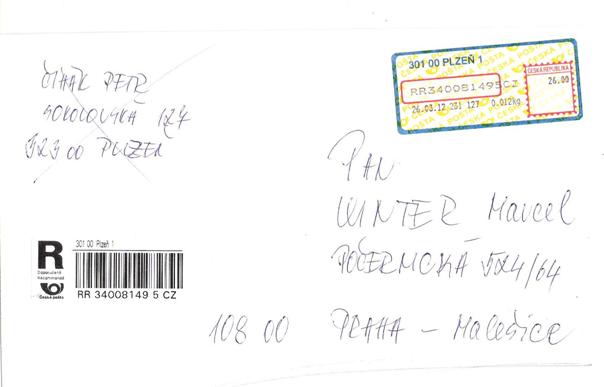 ČIHÁK PETR
SOKOLOVSKÁ 127
323 00 PLZEŇ
301 00 PLZEŇ 1
ČESKÁ REPUBLIKA
RR340081495CZ
26.00
26.03.12 231 127 0.012kg
PAN
WINTER Marcel
POČERNICKÁ 524/64
108 00 PRAHA - Malešice
R
Doporučeně
Recommandé
Česká pošta
301 00 Plzeň 1
RR 34008149 5 CZ